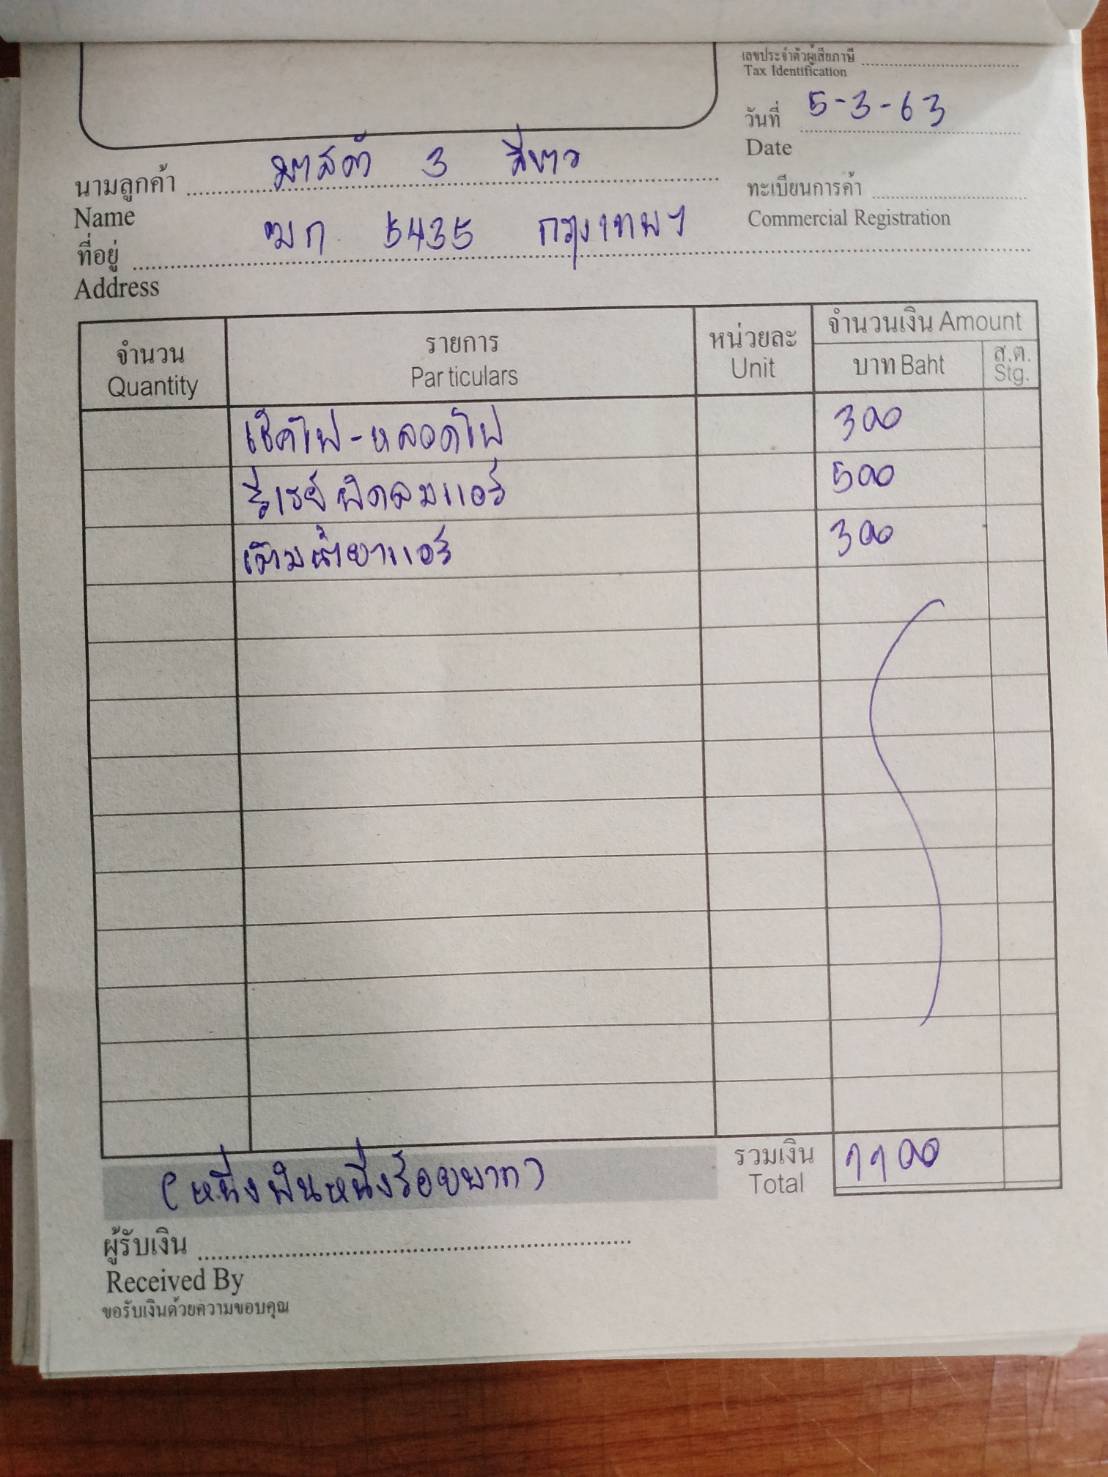 เลขประจำตัวผู้เสียภาษี
Tax Identification
วันที่ 5-3-63
Date
นามลูกค้า มาสด้า 3 สีขาว
Name
ทะเบียนการค้า
Commercial Registration
ที่อยู่ ฆก 5435 กรุงเทพฯ
Address
จำนวน รายการ หน่วยละ จำนวนเงิน Amount
Quantity Particulars Unit บาท Baht ส.ต. Stg.
เช็คไฟ-หลอดไฟ 300
รีเรย์พัดลมแอร์ 500
เติมน้ำยาแอร์ 300
(หนึ่งพันหนึ่งร้อยบาท) รวมเงิน 1100
Total
ผู้รับเงิน
Received By
ขอรับเงินด้วยความขอบคุณ